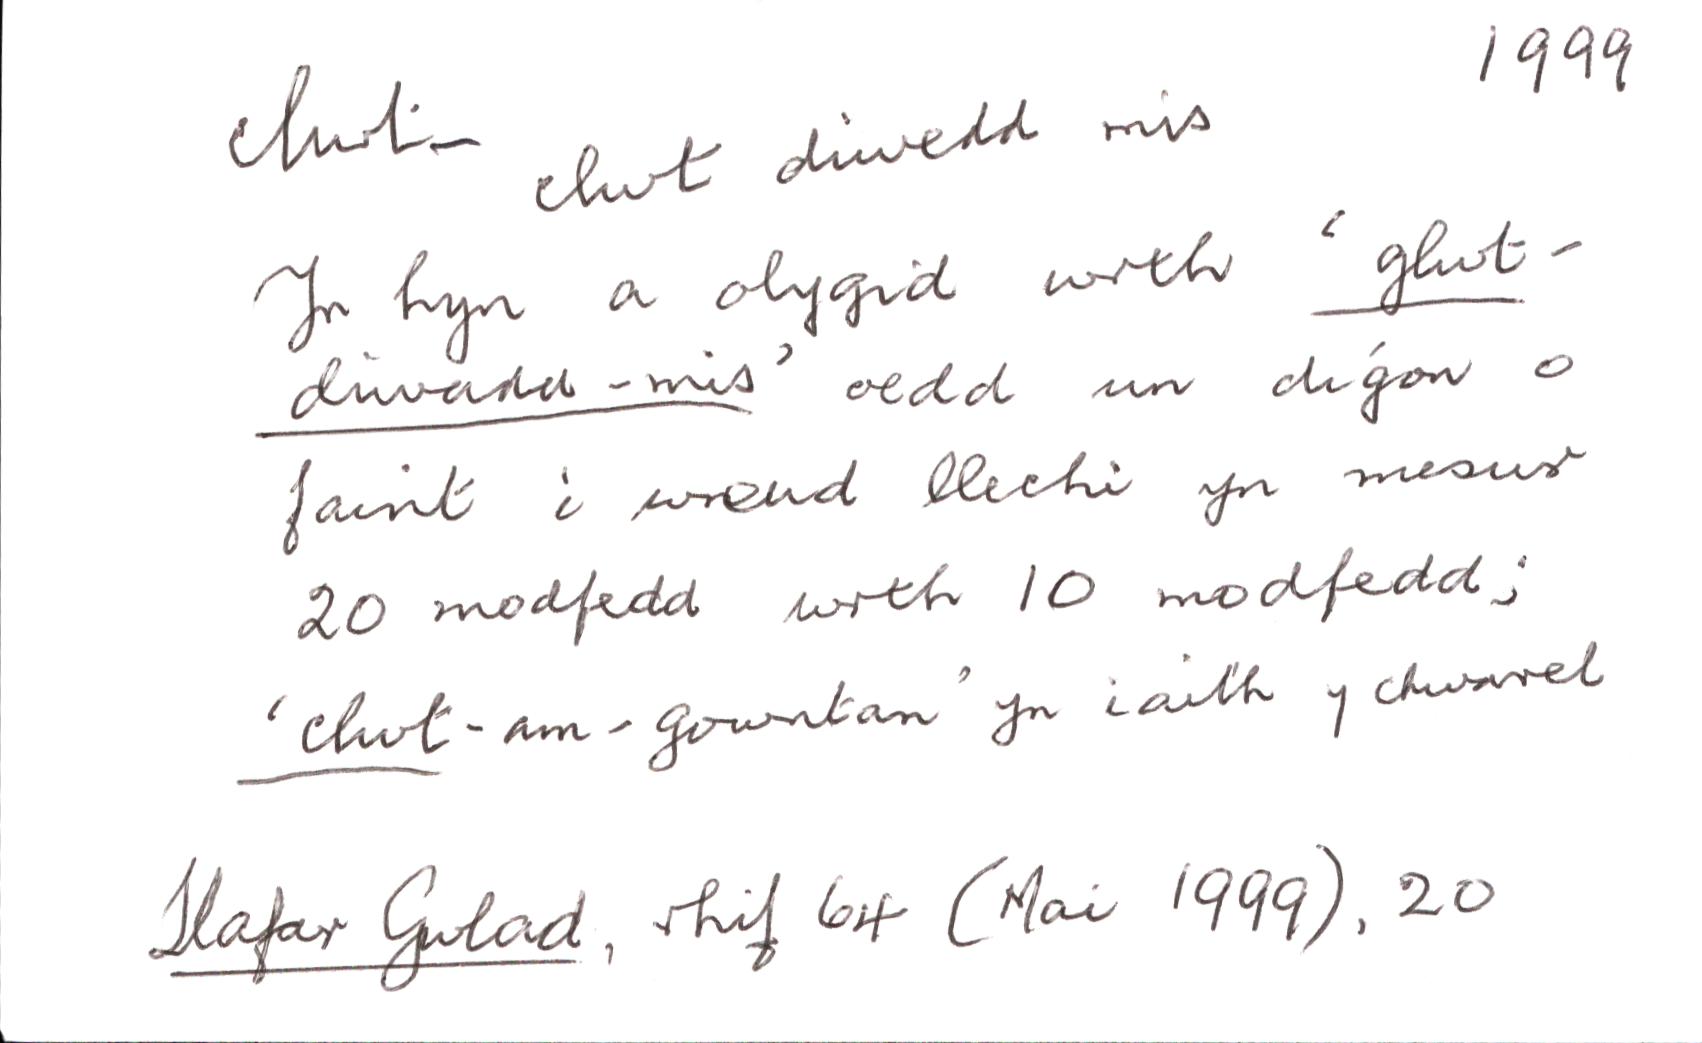 1999
clwt-
clwt diwedd mis
Yr hyn a olygid wrth ‘glwt-
diwadd-mis’ oedd un digon o
faint i wneud llechi yn mesur
20 modfedd wrth 10 modfedd;
‘clwt-am-gowntan’ yn iaith y chwarel
Llafar Gwlad, rhif 64 (Mai 1999), 20